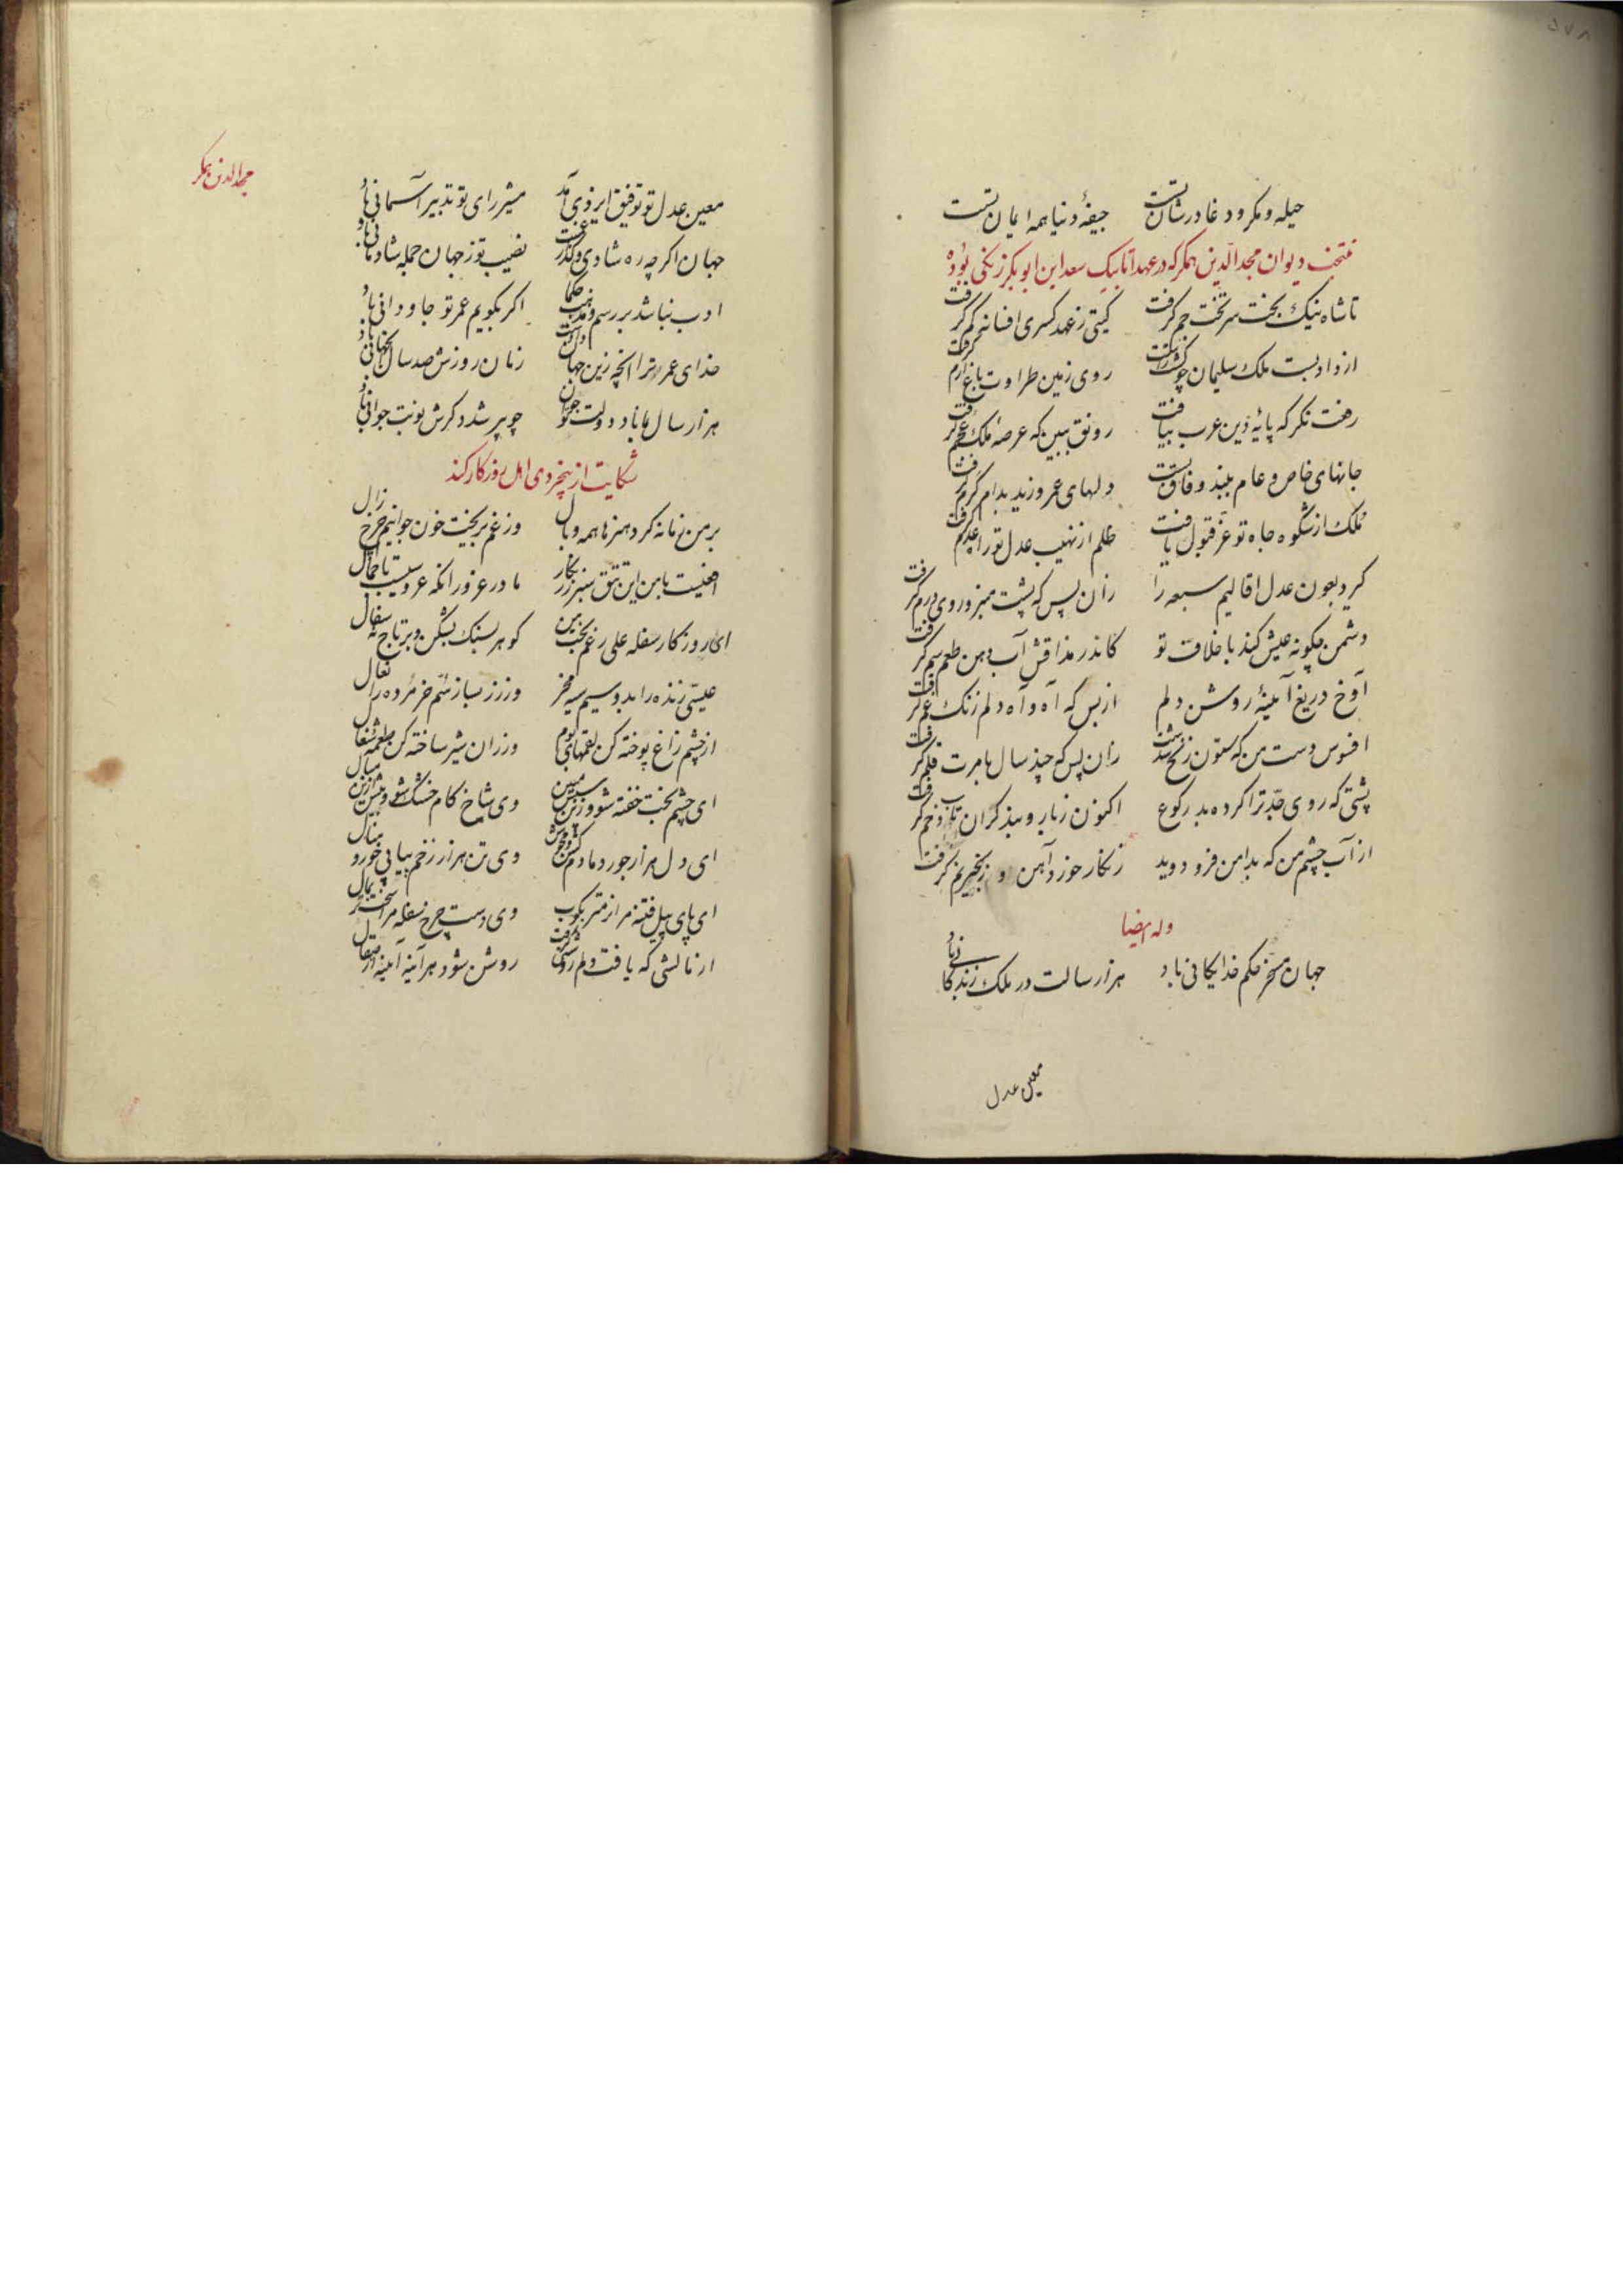 ۵۷۸
حیله و مکر و دغا در شانست جیفهٔ دنیا همه ایمانست
منتخب دیوان مجدالدین همکر که در عهد اتابیک سعد ابن ابوبکر زنکی بوده
تا شاه نیک بخت سر تخت جم کرفت کیتی ز عهد کسری افسانه کم کرفت
از داد بست ملک سلیمان چو روی زمین طراوت باغ ارم کرفت
رفعت نکر که پایهٔ دین عرب بیافت رونق ببین که عرصهٔ ملک عجم کرفت
جانهای خاص و عام ببند وفاق بست دلهای عمرو و زید بدام کرم کرفت
ملک از شکوه جاه تو عز قبول یافت ظلم از نهیب عدل تو راه عدم کرفت
کرد بعون عدل اقالیم سبعه را زان پس که پشت منبر و روی درم کرفت
دشمن چکونه عیش کند با خلاف تو کاندر مذاقش آب دهن طعم سم کرفت
آوخ دریغ آینهٔ روشن دلم از بس که آه و آه دلم زنک غم کرفت
افسوس دست من که ستون زنخ شدست زان پس که چند سال بامرت قلم کرفت
پشتی که روی جد ترا کرده بد رکوع اکنون زبار و بند کران تاب و خم کرفت
از آب چشم من که بدامن فرو دوید زنکار خورد آهن و زنجیر نم کرفت
وله ایضا
جهان مسخر حکم خدایکانی باد هزار سالت در ملک زندکانی باد
معین عدل
مجدالدین همکر
معین عدل تو توفیق ایزدی آمد مشیر رای تو تدبیر آسمانی باد
جهان اکرچه ره شادی و کذر نصیب تو ز جهان جمله شادمانی باد
ادب نباشد بر رسم و مذهب حکما اکر بکویم عمر تو جاودانی باد
خدای عمر ترا انچه زین جهان دادست زمان روزش صد سال انجهانی باد
هزار سال بماناد دولت تو جوان چو پیر شد دکرش نوبت جوانی باد
شکایت از بیخردی اهل روزکار کند
بر من زمانه کرد هنرها همه وبال وز غم بریخت خون جوانیم چرخ زال
با من این تتق سبز زرنکار مادر غرور انکه عروسیست با جمال
ای روزکار سفله علی رغم بخت من کوهر بسنک بشکن و بر تاج نه سفال
عیسی زنده را بدو سیم سیه مخر وز زر بساز سم خر مرده را نعال
از چشم زاغ پوخته کن لقمهای بوم وز ران شیر ساخته کن طعمه شغال
ای چشم بخت خفته شو و زین سپس مبین وی شاخ کام خشک شو و بیش ازین مبال
ای دل هزار جور دمادم کش و مجوش وی تن هزار زخم پیاپی خور و منال
ای پای پیل فتنه مرا نرمتر بکوب وی دست چرخ سفله مرا سختتر بمال
از نالشی که یافت دلم روشنی کرفت روشن شود هر آینه آینه از صقال